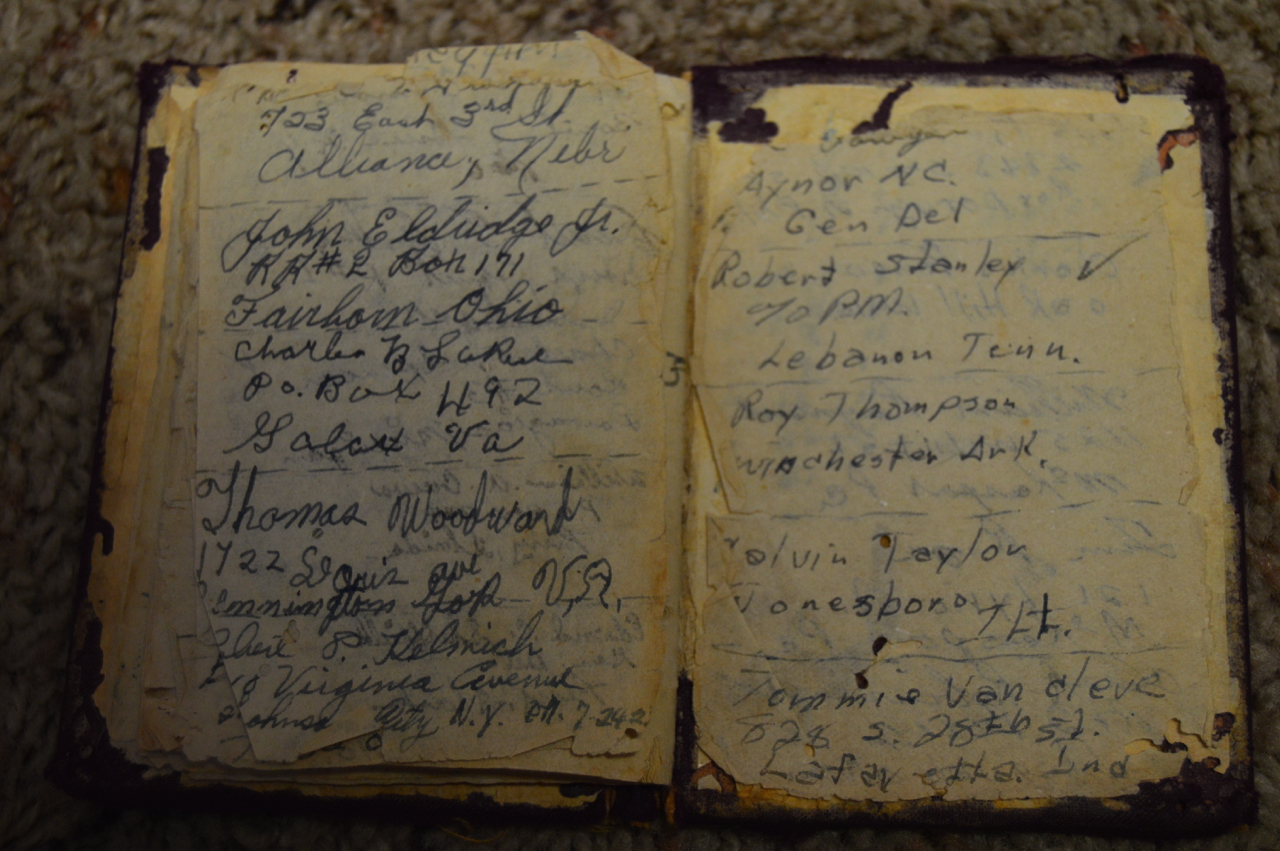 723 East 3rd St.
Alliance, Nebr
John Eldridge Jr.
RR#2 Box 171
Fairborn Ohio
Charles B
P.o. Box 492
Galax Va
Thomas Woodward
1722 ave
Va,
P. Helmich
Virginia Avenue
Johnson City N.Y. 7-242
Aynor NC.
Gen Del
Robert Stanley ✓
c/o P.M.
Lebanon Tenn.
Roy Thompson
Winchester Ark.
alvin Taylor
Jonesboro
Tommie Van cleve
828 S. 28th St.
Lafayette. Ind
5